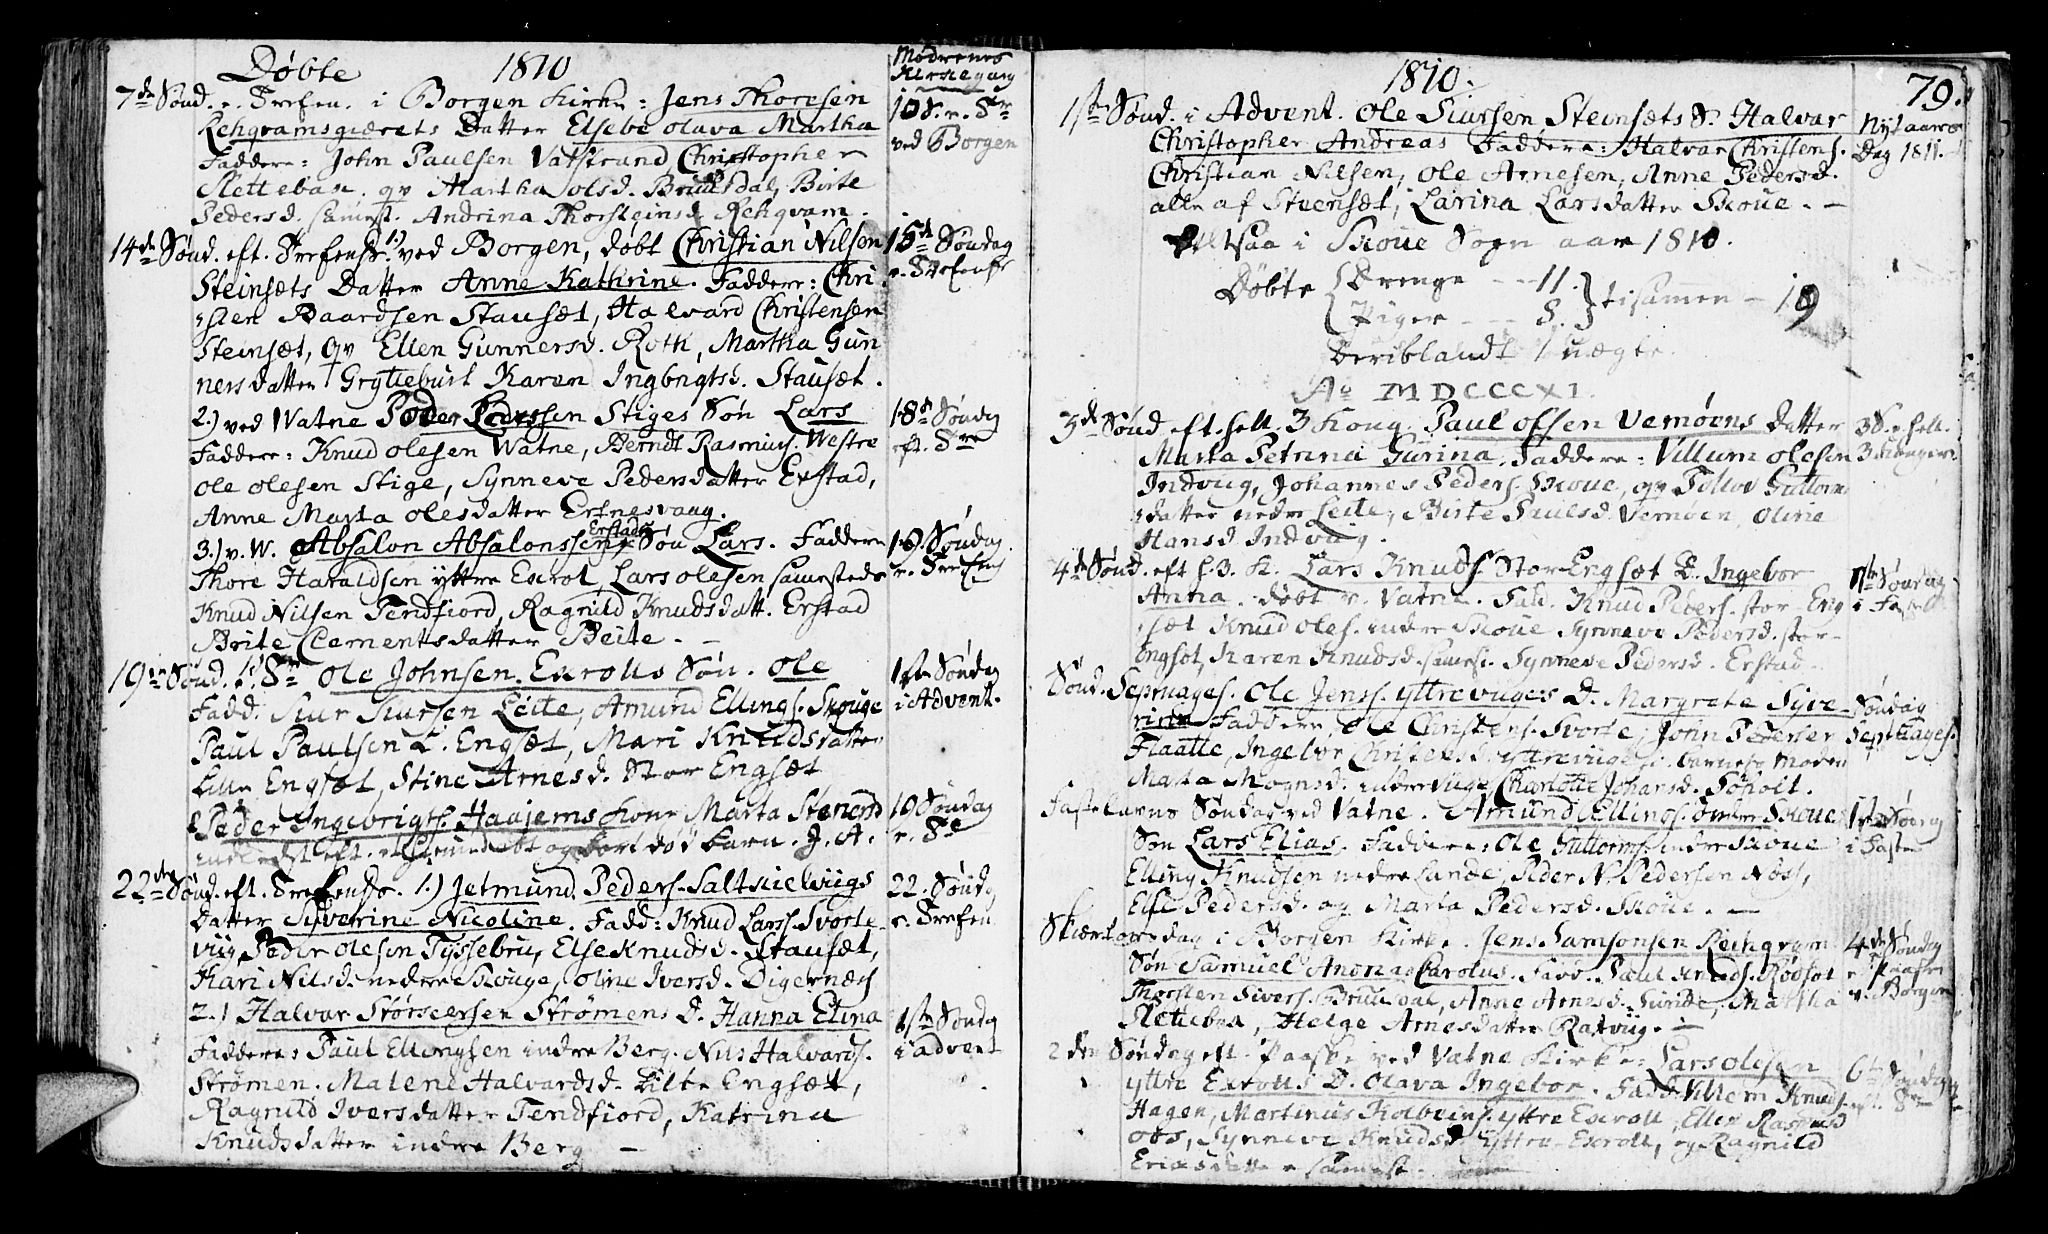 Døbte 1810
Mødrenes
Kirkegang
7de Sønd. e. Trefen. i Borgen Kirke: Jens Thoresen
Rehqvamsgiærets Datter Elsebe Olava Martha
Faddere: John Paulsen Vatstrand Christopher
Slettebak. qv Martha olsd. Bruusdal, Birte
Pedersd. samest. Andrina Thorsteinsd Rehqvam.
10 S. e. Tr
ved Borgen
14de Sønd. eft. Trefens. 1.) ved Borgen, døbt Christian Nilsen
Steinsæts Datter Anne Kathrine. Faddere: Chri-
sten Baardsen Stausæt, Halvard Christensen
Steinsæt, qv Ellen Gunnersd. Roth, Martha Gun
nersdatter Gryttebust Karen Ingbrigtsd. Stausæt.
15de Søndag
e. Trefens
2.) ved Vatne Peder Larssen Stiges Søn Lars
Faddere: Knud olesen Watne, Berndt Rasmus. Westre
Ole Olesen Stige, Synneve Pedersdatter Erstad,
Anne Marta olesdatter Ersnesvaag.
18de Søndag
eft. Tre
3.) v. W. Absalon Absalonssen Erstads Søn Lars. Faddere
Thore Haraldsen yttre Exrol, Lars olesen samesteds
Knud Nilsen Tendfiord, Ragnild Knudsdatt. Erstad
Brite Clementsdatter Beite. -
19. Søndag
e. Trefens
19de Sønd. e. Tr Ole Johnsen Exrolls Søn. Ole
Fadd. Siur Siursen Leite, Amund Ellings. Skouge
Paul Paulsen L. Engsæt, Mari Knudsdatter
Lille Engsæt, Stine Arnesd. Stor Engsæt
1ste Søndag
i Advent.
Peder Ingebrigts. Haajems Kone Marta Stenersd
indledet eft. et hiemmedøbt og bort død barn. J. A.
10 Søndag
e. Tr
22de Sønd. eft. Trefens. 1.) Jetmund Peders. Saltkielviigs
Datter Syverine Nicoline. Fadd: Knud Larss. Svorte
viig, Peder olesen Tyssebru, Else Knudsd. Stausæt,
Kari Nilsd. nedre Skouge, oline Iversd. Digernæs
22. Søndag
e. Trefen
2.) Halvar Størkersen Strømens D. Hanna Elina
Faddere: Paul Ellingsen indre Berg. Nils Halvards.
Strømen. Malene Halvardsd. Lille Engsæt,
Ragnild Iversdatter Tendfiord, Katrina
Knudsdatter indre Berg -
1ste Søndag
i advent
1810.
79.
1ste Sønd. i Advent. Ole Siursen Steinsæts S. Halvar
Christopher Andreas Faddere: Halvar Christens.
Christian Nilsen, Ole Arnesen, Anne Pedersd.
alle af Steensæt, Larina Larsdatter Skoue. -
Nytaars
Dag 1811.
Altsaa i Skoue Sogn aar 1810.
Døbte Drenge - - 11.
Piger - - - 8. tilsamen - 19
Deriblandt 1 uægte.
Ao MDCCCXI.
3de Sønd eft. hell. 3 Kong. Paul olsen Vemøens Datter
Marta Petrina Gurina. Faddere: Villum olesen
Indviig, Johannes Peders. Skoue, qv Tollov Guttorms
datter nedre Leite, Birte Paulsd. Vemøen, Oline
Hansd Indviig.
3 S. e. hell.
3 Konger
4de Sønd. eft h. 3. K. Lars Knuds. Stor Engsæt D. Ingebor
Anna. døbt v. Vatne. Fadd. Knud Peders. stor-Eng
sæt Knud oles. indre Skoue Synneve Pedersd. stor-
Engsæt, Karen Knudsd. samest. Synneve Pedersd. Erstad.
1ste Søndag
i Faste
Sønd. Septuages. Ole Jenss. yttreviiges D. Margrete Syve
rina Faddere, Ole Christens. Svorte, John Pedersen
Flaatte, Ingebor Christensd. yttreviige, barnets Moder
Marta Mognsd. indreviige Charlotte Johansd. Søholt.
Søndag
Septuages.
Fastelavns Søndag ved Vatne. Amund Ellings. øvre Skoues
Søn Lars Elias. Faddere: Ole Guttorms. indre Skoue
Elling Knudsen nedre Lande, Peder N. Pedersen Næst,
Else Pedersd. og Marta Pedersd. Skoue. -
1ste Sønd
i Faste
Skiærtorsdag i Borgen Kirke. Jens Samsonsen Rechqvam
Søn Samuel Andrias Carolus. Fadd. Paul Knuds. Rødset
Thorsten Sivers. Bruusdal, Anne Arnesd. Sunde, Martha
Slettebak, Helge Arnesdatter Ratviig. -
4de Søndag
e. Paaske
v. Borgen
2den Søndag eft. Paaske ved Vatne Kirke: Lars Olesen
yttre Exrolls D. Olava Ingebor. Fadd. Villem Knuds.
Hagen, Martinus Kolbeins. yttre Exroll, Ellen Rasmusd
oos, Synneve Knudsd. yttre Exroll, og Ragnild
Ericsdatter samest.
6te Søndag
eft. Tr